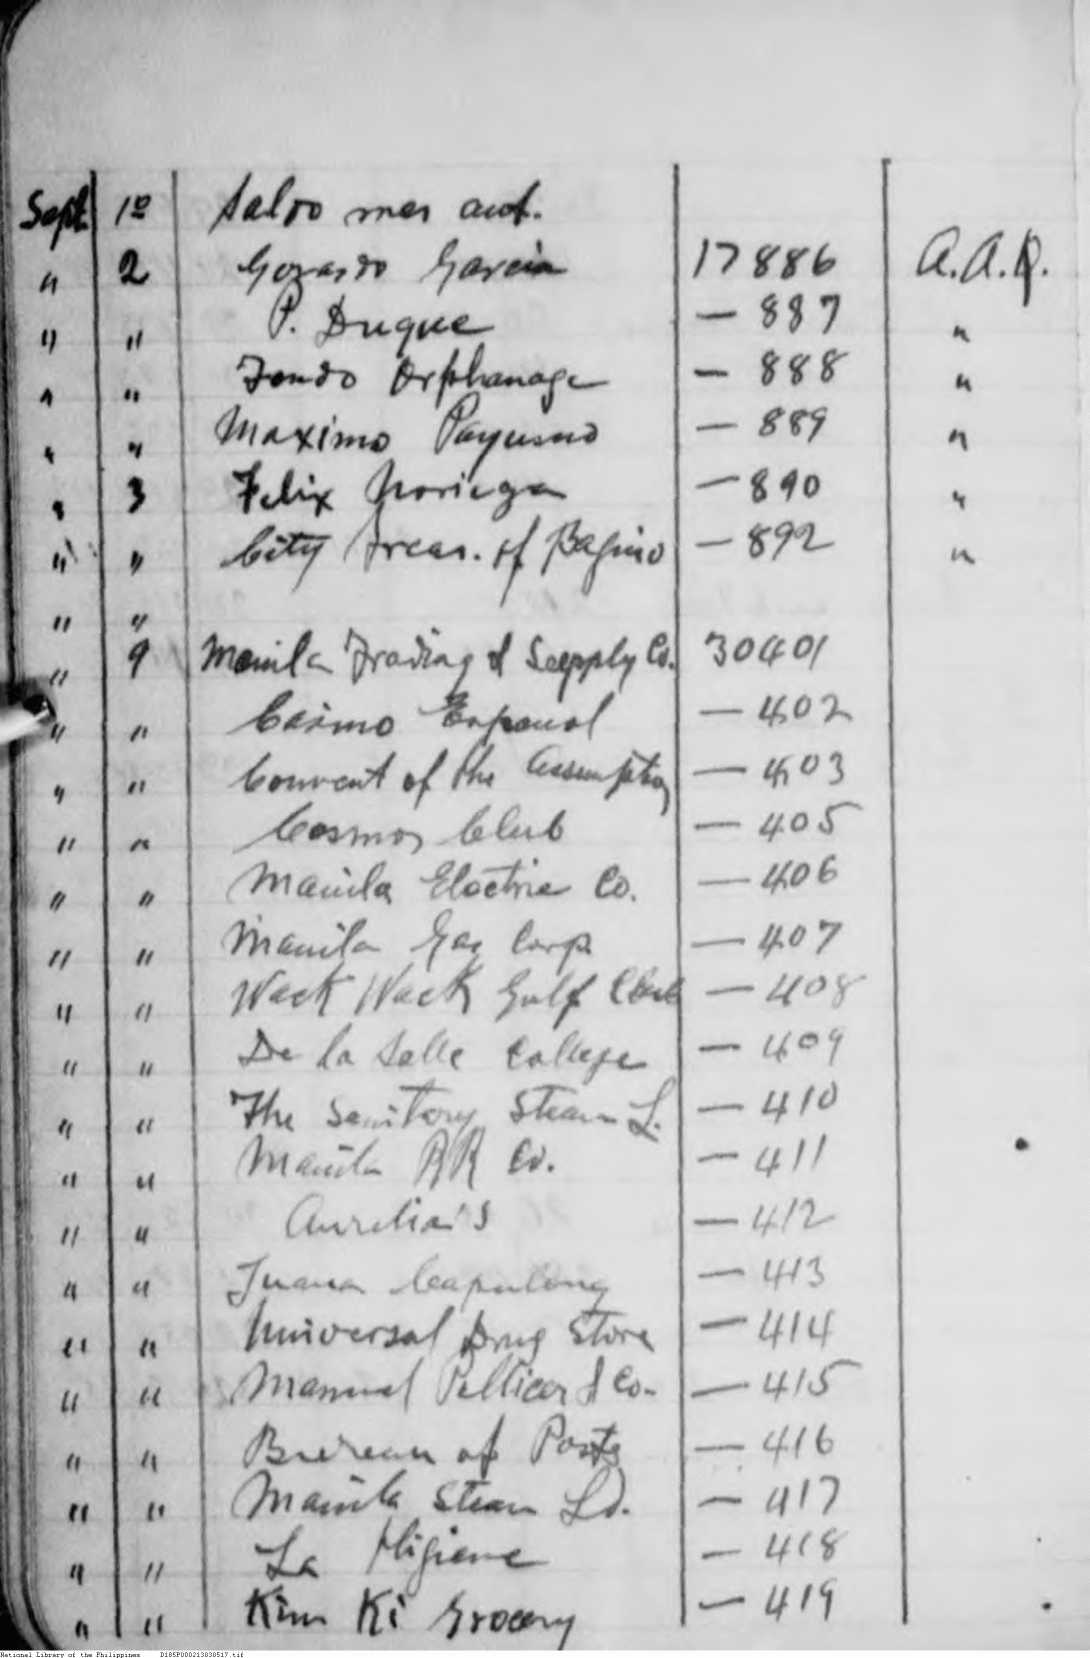 Sept 1º Saldo mes ant.
" 2 Gerardo Garcia 17886 A.A.R.
" " P. Duque — 887 "
" " Tondo Orphanage — 888 "
" " Maximo Payumo — 889 "
" 3 Felix Noriega — 890 "
" " City Treas. of Baguio — 892 "
" "
" 9 Manila Trading & Supply Co. 30401
" " Casino Espanol — 402
" " Convent of the Assumption — 403
" " Cosmos Club — 405
" " Manila Electric Co. — 406
" " Manila Gas Corp. — 407
" " Wack Wack Gulf Club — 408
" " De La Salle College — 409
" " The Sanitary Steam L. — 410
" " Manila RR Co. — 411
" " Aurelia's — 412
" " Juana Capulong — 413
" " Universal Drug Store — 414
" " Manuel Pellicer & Co. — 415
" " Bureau of Posts — 416
" " Manila Steam Ld. — 417
" " La Higiene — 418
" " Kim Ki Grocery — 419
National Library of the Philippines D185P000213030517.tif